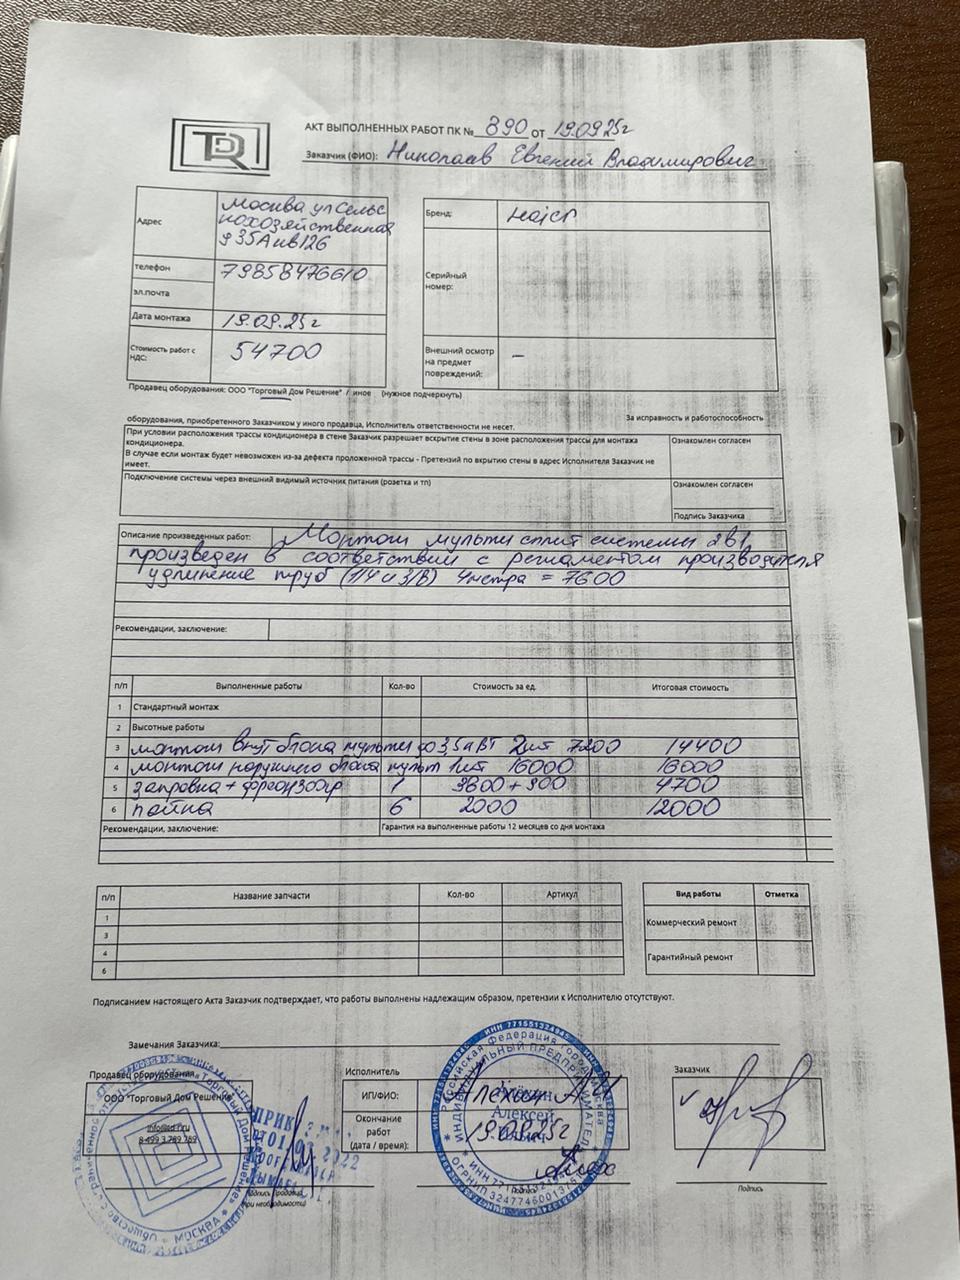 TDR
АКТ ВЫПОЛНЕННЫХ РАБОТ ПК № 890 от 19.09.25г
Заказчик (ФИО): Николаев Евгений Владимирович
Адрес
Москва ул Сельс
кохозяйственная
д 35А кв 126
телефон 79858476610
эл.почта
Дата монтажа 19.09.25г
Стоимость работ с НДС: 54700
Бренд: Haier
Серийный номер:
Внешний осмотр на предмет повреждений: –
Продавец оборудования: ООО "Торговый Дом Решение" / иное (нужное подчеркнуть)
За исправность и работоспособность
оборудования, приобретенного Заказчиком у иного продавца, Исполнитель ответственности не несет.
При условии расположения трассы кондиционера в стене Заказчик разрешает вскрытие стены в зоне расположения трассы для монтажа
кондиционера.
В случае если монтаж будет невозможен из-за дефекта проложенной трассы - Претензий по вкрытию стены в адрес Исполнителя Заказчик не
имеет.
Ознакомлен согласен
Подключение системы через внешний видимый источник питания (розетка и тп)
Ознакомлен согласен
Подпись Заказчика
Описание произведенных работ: Монтаж мульти сплит системы 2в1,
произведен в соответствии с регламентом производителя
удлинение труб (1/4 и 3/8) 4метра = 7600
Рекомендации, заключение:
п/п Выполненные работы Кол-во Стоимость за ед. Итоговая стоимость
1 Стандартный монтаж
2 Высотные работы
3 монтаж внут блока мульти до 3,5 кВт 2шт 7200 14400
4 монтаж наружного блока мульт 1шт 16000 16000
5 заправка + 1 3800 + 900 4700
6 пайка 6 2000 12000
Рекомендации, заключение: Гарантия на выполненные работы 12 месяцев со дня монтажа
п/п Название запчасти Кол-во Артикул
1
3
4
6
Вид работы Отметка
Коммерческий ремонт
Гарантийный ремонт
Подписанием настоящего Акта Заказчик подтверждает, что работы выполнены надлежащим образом, претензии к Исполнителю отсутствуют.
Замечания Заказчика:
Продавец оборудования
ООО "Торговый Дом Решение"
Исполнитель
ИП/ФИО:
Окончание работ (дата / время): 19.09.25г
Подпись
Заказчик
Подпись
«Торговый Дом Решение»
МОСКВА
Российская Федерация город Москва
ИНДИВИДУАЛЬНЫЙ ПРЕДПРИНИМАТЕЛЬ
Алексей